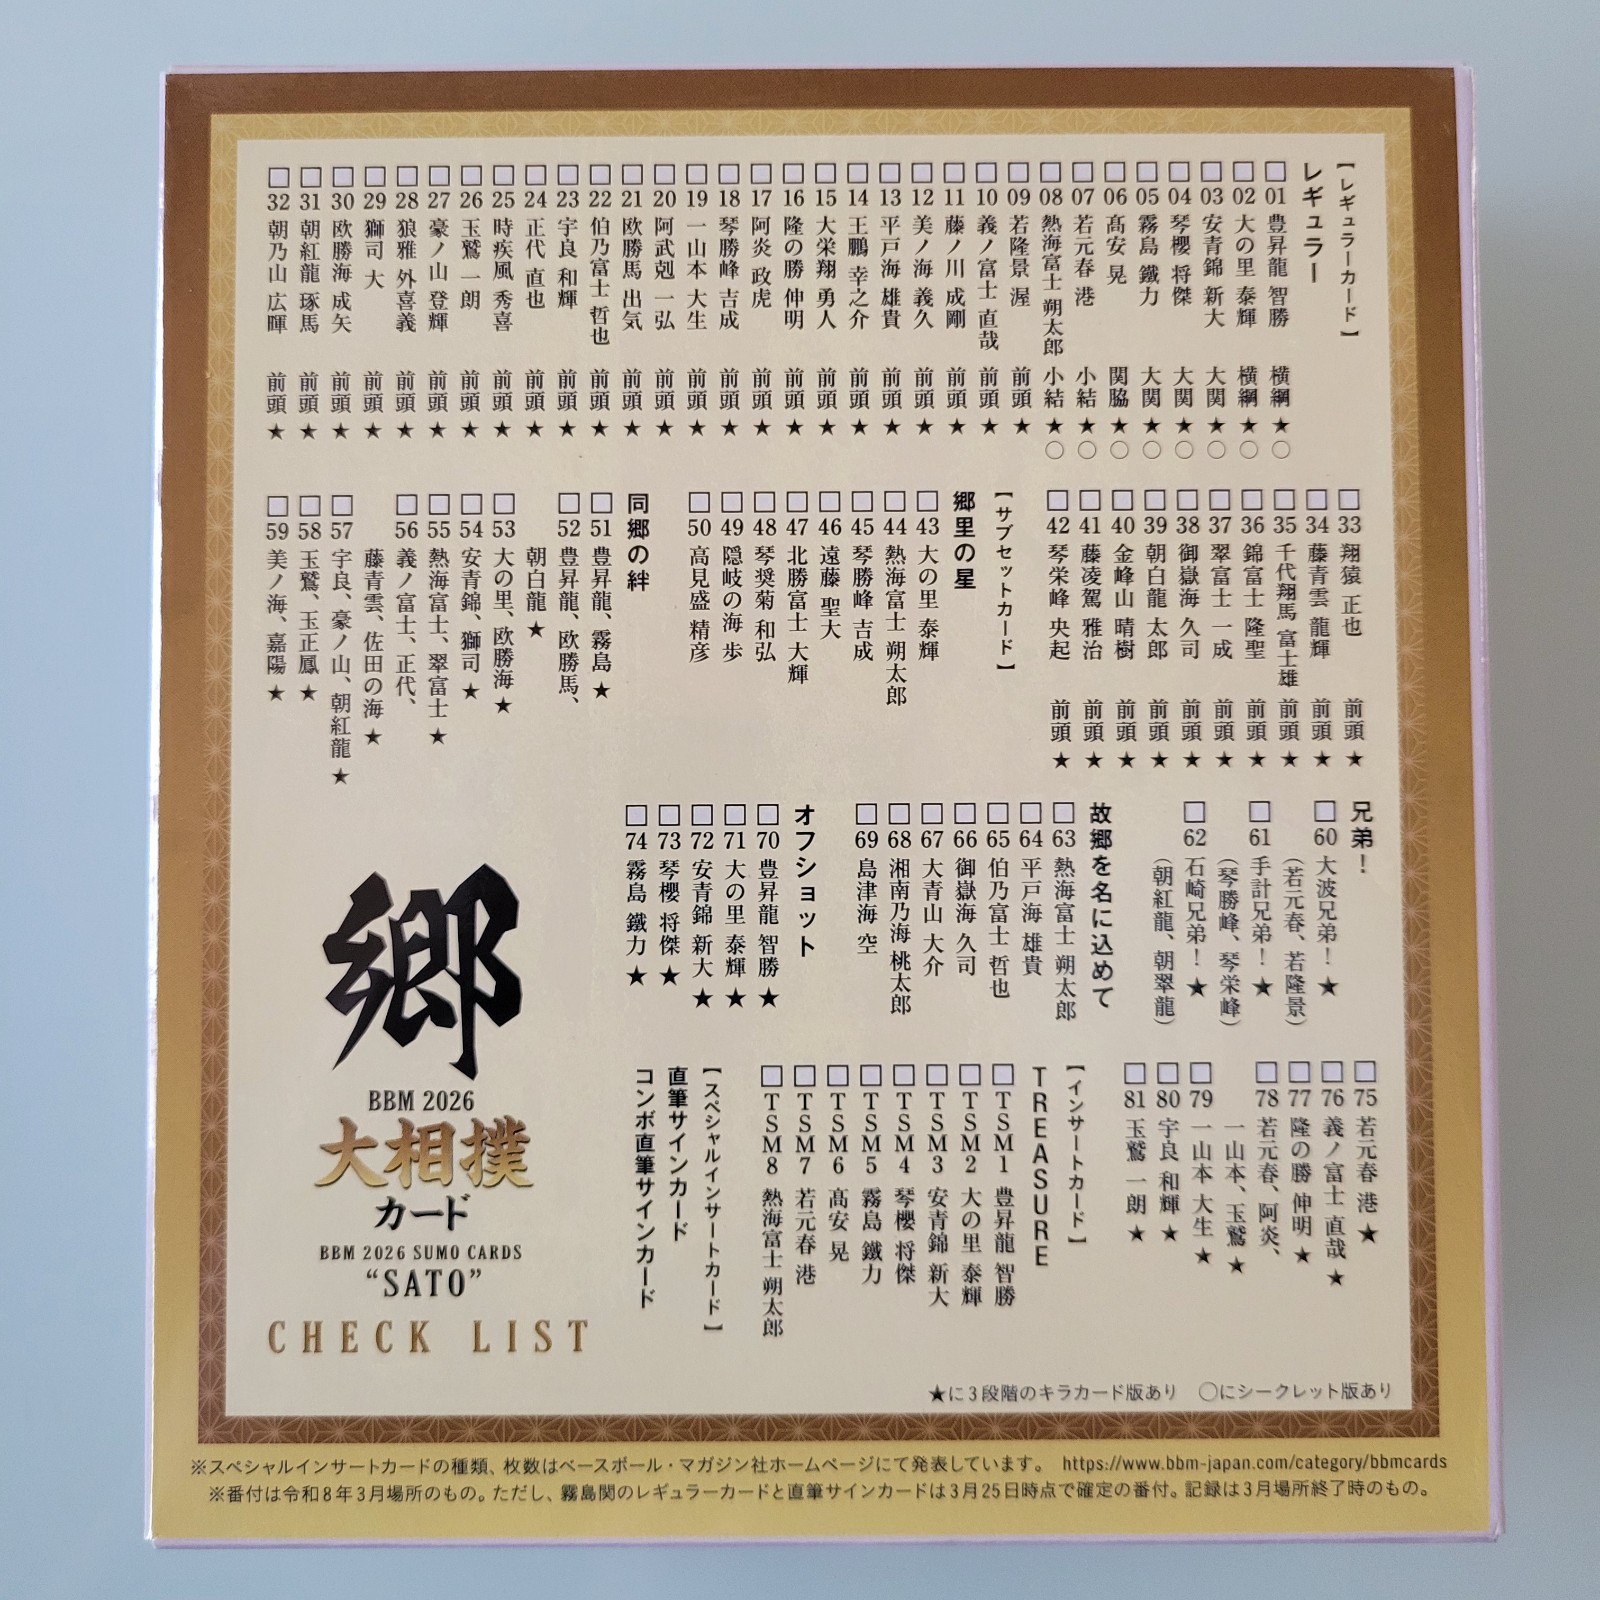 【レギュラーカード】
レギュラー
□01 豊昇龍 智勝 横綱★○
□02 大の里 泰輝 横綱★○
□03 安青錦 新大 大関★○
□04 琴櫻 将傑 大関★○
□05 霧島 鐵力 大関★○
□06 髙安 晃 関脇★○
□07 若元春 港 小結★○
□08 熱海富士 朔太郎 小結★○
□09 若隆景 渥 前頭★
□10 義ノ富士 直哉 前頭★
□11 藤ノ川 成剛 前頭★
□12 美ノ海 義久 前頭★
□13 平戸海 雄貴 前頭★
□14 王鵬 幸之介 前頭★
□15 大栄翔 勇人 前頭★
□16 隆の勝 伸明 前頭★
□17 阿炎 政虎 前頭★
□18 琴勝峰 吉成 前頭★
□19 一山本 大生 前頭★
□20 阿武剋 一弘 前頭★
□21 欧勝馬 出気 前頭★
□22 伯乃富士 哲也 前頭★
□23 宇良 和輝 前頭★
□24 正代 直也 前頭★
□25 時疾風 秀喜 前頭★
□26 玉鷲 一朗 前頭★
□27 豪ノ山 登輝 前頭★
□28 狼雅 外喜義 前頭★
□29 獅司 大 前頭★
□30 欧勝海 成矢 前頭★
□31 朝紅龍 琢馬 前頭★
□32 朝乃山 広暉 前頭★
□33 翔猿 正也 前頭★
□34 藤青雲 龍輝 前頭★
□35 千代翔馬 富士雄 前頭★
□36 錦富士 隆聖 前頭★
□37 翠富士 一成 前頭★
□38 御嶽海 久司 前頭★
□39 朝白龍 太郎 前頭★
□40 金峰山 晴樹 前頭★
□41 藤凌駕 雅治 前頭★
□42 琴栄峰 央起 前頭★
【サブセットカード】
郷里の星
□43 大の里 泰輝
□44 熱海富士 朔太郎
□45 琴勝峰 吉成
□46 遠藤 聖大
□47 北勝富士 大輝
□48 琴奨菊 和弘
□49 隠岐の海 歩
□50 高見盛 精彦
同郷の絆
□51 豊昇龍、霧島★
□52 豊昇龍、欧勝馬、
朝白龍★
□53 大の里、欧勝海★
□54 安青錦、獅司★
□55 熱海富士、翠富士★
□56 義ノ富士、正代、
藤青雲、佐田の海★
□57 宇良、豪ノ山、朝紅龍★
□58 玉鷲、玉正鳳★
□59 美ノ海、嘉陽★
兄弟！
□60 大波兄弟！★
（若元春、若隆景）
□61 手計兄弟！★
（琴勝峰、琴栄峰）
□62 石崎兄弟！★
（朝紅龍、朝翠龍）
故郷を名に込めて
□63 熱海富士 朔太郎
□64 平戸海 雄貴
□65 伯乃富士 哲也
□66 御嶽海 久司
□67 大青山 大介
□68 湘南乃海 桃太郎
□69 島津海 空
オフショット
□70 豊昇龍 智勝★
□71 大の里 泰輝★
□72 安青錦 新大★
□73 琴櫻 将傑★
□74 霧島 鐵力★
□75 若元春 港★
□76 義ノ富士 直哉★
□77 隆の勝 伸明★
□78 若元春、阿炎、
一山本、玉鷲★
□79 一山本 大生★
□80 宇良 和輝★
□81 玉鷲 一朗★
【インサートカード】
TREASURE
□TSM1 豊昇龍 智勝
□TSM2 大の里 泰輝
□TSM3 安青錦 新大
□TSM4 琴櫻 将傑
□TSM5 霧島 鐵力
□TSM6 髙安 晃
□TSM7 若元春 港
□TSM8 熱海富士 朔太郎
【スペシャルインサートカード】
直筆サインカード
コンボ直筆サインカード
郷
BBM 2026
大相撲
カード
BBM 2026 SUMO CARDS
“SATO”
CHECK LIST
★に3段階のキラカード版あり ○にシークレット版あり
※スペシャルインサートカードの種類、枚数はベースボール・マガジン社ホームページにて発表しています。 https://www.bbm-japan.com/category/bbmcards
※番付は令和8年3月場所のもの。ただし、霧島関のレギュラーカードと直筆サインカードは3月25日時点で確定の番付。記録は3月場所終了時のもの。